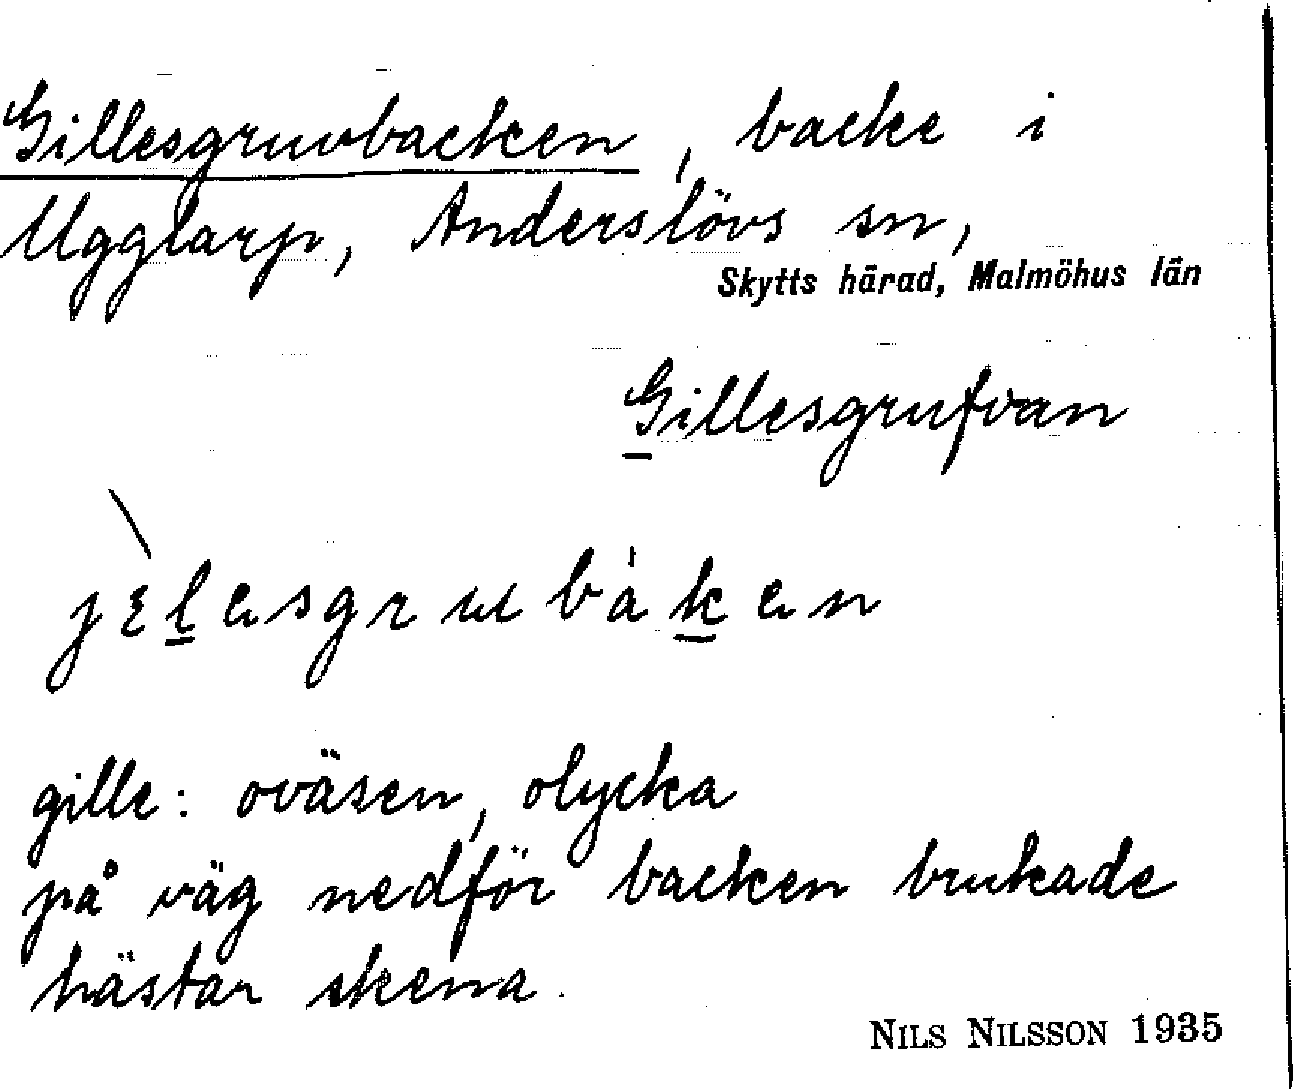 Gillesgruvbacken, backe i
Ugglarp, Anderslövs sn,
Skytts härad, Malmöhus län
Gillesgrufvan
jɛlesgrubaken
gille: oväsen, olycka
på väg nedför backen brukade
hästar skena.
NILS NILSSON 1935